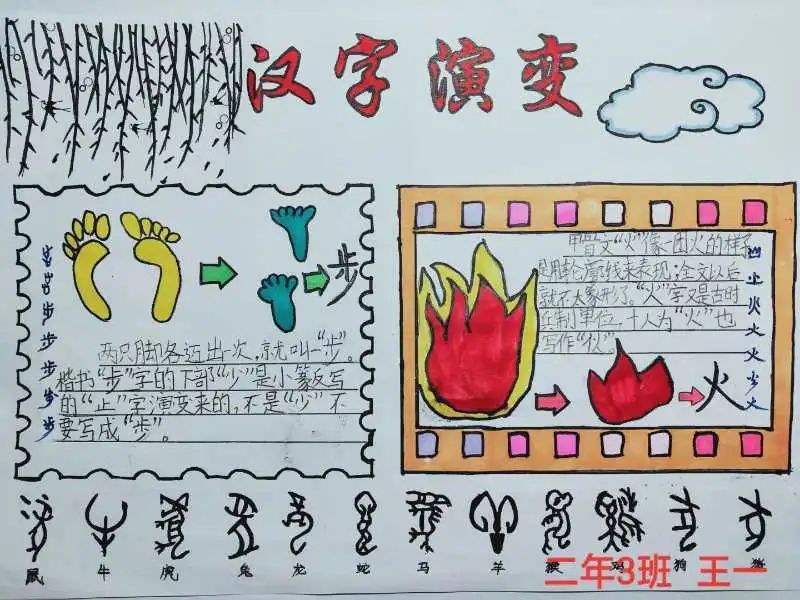 汉字演变
步
两只脚各迈出一次，就叫一“步”。
楷书“步”字的下部“少”是小篆反写
的“止”字演变来的，不是“少”不
要写成“步”。
甲骨文“火”像一团火的样子
是用轮廓线来表现；金文以后
就不太象形了。“火”字又是古时
兵制单位，十人为“火”也
写作“伙”。
火
鼠 牛 虎 兔 龙 蛇 马 羊 猴 鸡 狗 猪
二年3班 王一